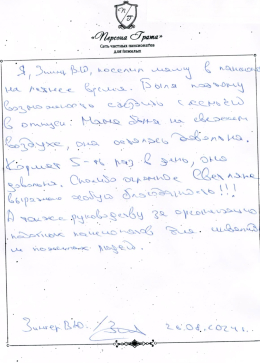 «Персона Грата»
Сеть частных пансионатов
для пожилых
Я, Зимер В.Ю, поселил маму в пансионат
на летнее время. Была поэтому
возможность съездить с семьёй
в отпуск. Мама была на свежем
воздухе, она осталась довольна.
Кормят 5-ть раз в день, она
довольна. Спасибо огромное Светлане
Выражаю благодарность!!!
А также руководству за организацию
пансионатов для
и пожилых людей.
В.Ю. 26.08.2024 г.